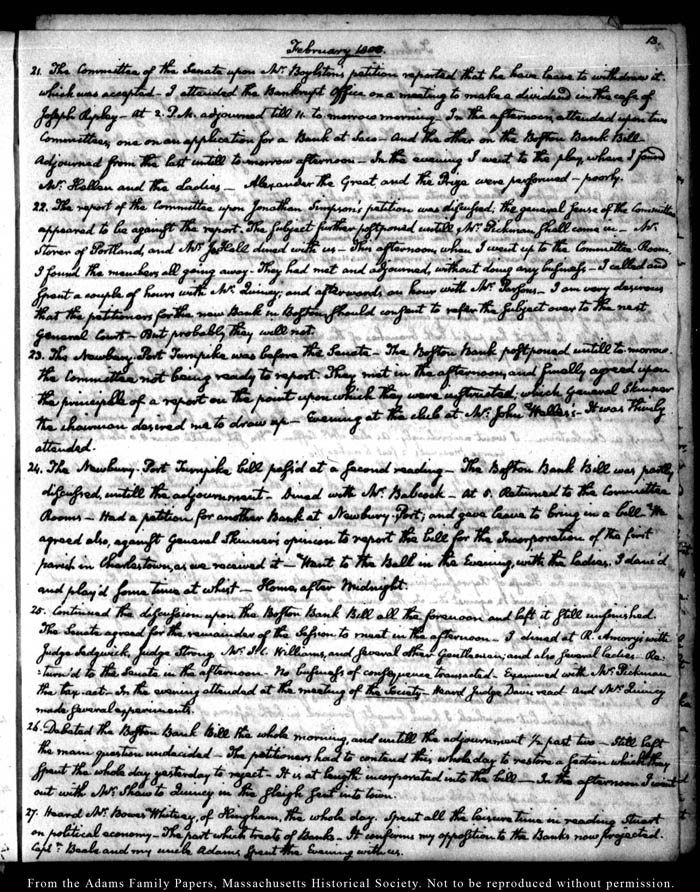 13.
February 1803.
21. The Committee of the Senate upon Mr. Boylston's petition reported that he have leave to withdraw it.
which was accepted — I attended the Bankrupt Office on a meeting to make a dividend in the case of
Joseph Ripley — At 2. P.M. adjourned till 11. to-morrow morning — In the afternoon, attended upon two
Committees, one on an application for a Bank at Saco — And the other on the Boston Bank Bill —
Adjourned from the last untill to-morrow afternoon — In the evening I went to the play, where I found
Mr. and the Ladies — Alexander the Great and the Prize were performed — poorly.
22. The report of the Committee upon Jonathan Simpson's petition was discussed; the general sense of the Committee
appeared to be against the report. The subject further postponed untill Mr. Pickman shall come in — Mr.
Storer of Portland, and Mr. J. Hall dined with us — This afternoon, when I went up to the Committee Room,
I found the members all going away — They had met and adjourned, without doing any business — I called and
spent a couple of hours with Mr. Quincy; and afterwards an hour with Mr. Parsons — I am very desirous
that the petitioners for the new Bank in Boston should consent to refer the subject over to the next
General Court — But probably they will not.
23. The Newbury-Port Turnpike was before the Senate — The Boston Bank postponed untill to-morrow.
the Committee not being ready to report. They met in the afternoon, and finally agreed upon
the principle of a report on the point upon which they were instructed; which General Skinner
the chairman desired me to draw up — Evening at the club at Mr. John — It was thinly
attended.
24. The Newbury-Port Turnpike bill pass'd at a second reading — The Boston Bank Bill was partly
discussed, untill the adjournment — Dined with Mr. Babcock — At 5. Returned to the Committee
Rooms — Had a petition for another Bank at Newbury-Port; and gave leave to bring in a bill. We
agreed also, against General Skinner's opinion to report the bill for the Incorporation of the first
parish in Charlestown, as we received it — Went to the Ball in the Evening, with the Ladies. I danc'd
and play'd some time at whist — Home, after Midnight.
25. Continued the discussion upon the Boston Bank Bill all the forenoon and left it still unfinished.
The Senate agreed for the remainder of the Session to meet in the afternoon — I dined at R. Amory's with
Judge Sedgwick, Judge Strong, Mr. Williams, and several other Gentlemen; and also several ladies — Re-
=turn'd to the Senate in the afternoon — No business of consequence transacted — Examined with Mr. Pickman
the tax-act — In the evening attended at the meeting of the Society — Heard Judge Davis read and Mr. Quincy
made several experiments.
26. Debated the Boston Bank Bill the whole morning, and untill the adjournment 1/2 past two — Still left
the main question undecided — The petitioners had to contend this whole day to restore a section which they
spent the whole day yesterday to reject — It is at length incorporated into the bill — In the afternoon I went
out with Mr. Shaw to Quincy in the sleigh sent into town.
27. Heard Mr. Whitney, of Hingham, the whole day. Spent all the leisure time in reading Stuart
on political economy — The part which treats of Banks — It confirms my opposition to the Banks now projected.
Captn. Beale and my uncle Adams, spent the Evening with us.
From the Adams Family Papers, Massachusetts Historical Society. Not to be reproduced without permission.